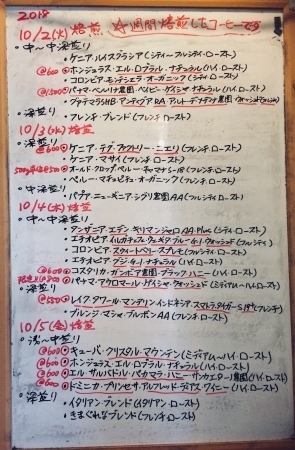 2018
10/2(火) 焙煎 今週間焙煎したコーヒーです
○中～中深煎り
・ケニア・ハイスプラシア(シティ～フルシティ・ロースト)
@600 ホンジュラス・エル・ロブラル・ナチュラル(ハイ・ロースト)
・コロンビア・モンデシィート・オーガニック(シティ・ロースト)
@1,500 パナマ・ベルリナ農園・ベイビー・ゲイシャ・ナチュラル(ハイ・ロースト)
・グァテマラSHB・アンティグアRA・
○深煎り
・フレンチ・ブレンド(フレンチ・ロースト)
10/3(水) 焙煎
○深煎り
@600 ケニア・テグ・ファクトリー・ニエリ(フレンチ・ロースト)
・ケニア・マサイ(フレンチ・ロースト)
オールド・クロップ・ペルー・チャンチャマイヨ(フレンチ・ロースト)
・ペルー・マチュピチュ・オーガニック(フレンチ・ロースト)
○中深煎り
・パプア・ニューギニア・シグリ農園AA(フルシティ・ロースト)
10/4(木) 焙煎
○中～中深煎り
・タンザニア・エデン・キリマンジャロAA Plus(シティ・ロースト)
・エチオピア・イルガチェフェ・
・コロンビア・スウィートベリー・スプレモ(フルシティ・ロースト)
・エチオピア・グジ・G-1・ナチュラル(ハイ・ロースト)
@600 コスタリカ・ガンボア農園・ブラック・ハニー(ハイ・ロースト)
パナマ・アウロマール・ゲイシャ・ウォッシュド(ミディアム～ハイ・ロースト)
○深煎り
@550 レイク・タワール・マンデリン・インドネシア・スマトラタイガー(フレンチ・ロースト)
・ブレンジ・マシャ・ブルボンAA(フレンチ・ロースト)
10/5(金) 焙煎
○浅～中煎り
@600 キューバ・クリスタル・マウンテン(ミディアム～ハイ・ロースト)
@600 ホンジュラス・エル・ロブラル・ナチュラル(ハイ・ロースト)
エル・サルバドル・パカマラ・ハニー・サンカエターノ農園(ハイ・ロースト)
ドミニカ・プリンセサ・アルフレッド・ディアス・ワイニー(ハイ・ロースト)
○深煎り
・イタリアン・ブレンド(イタリアン・ロースト)
・きまぐれなブレンド(フレンチ・ロースト)